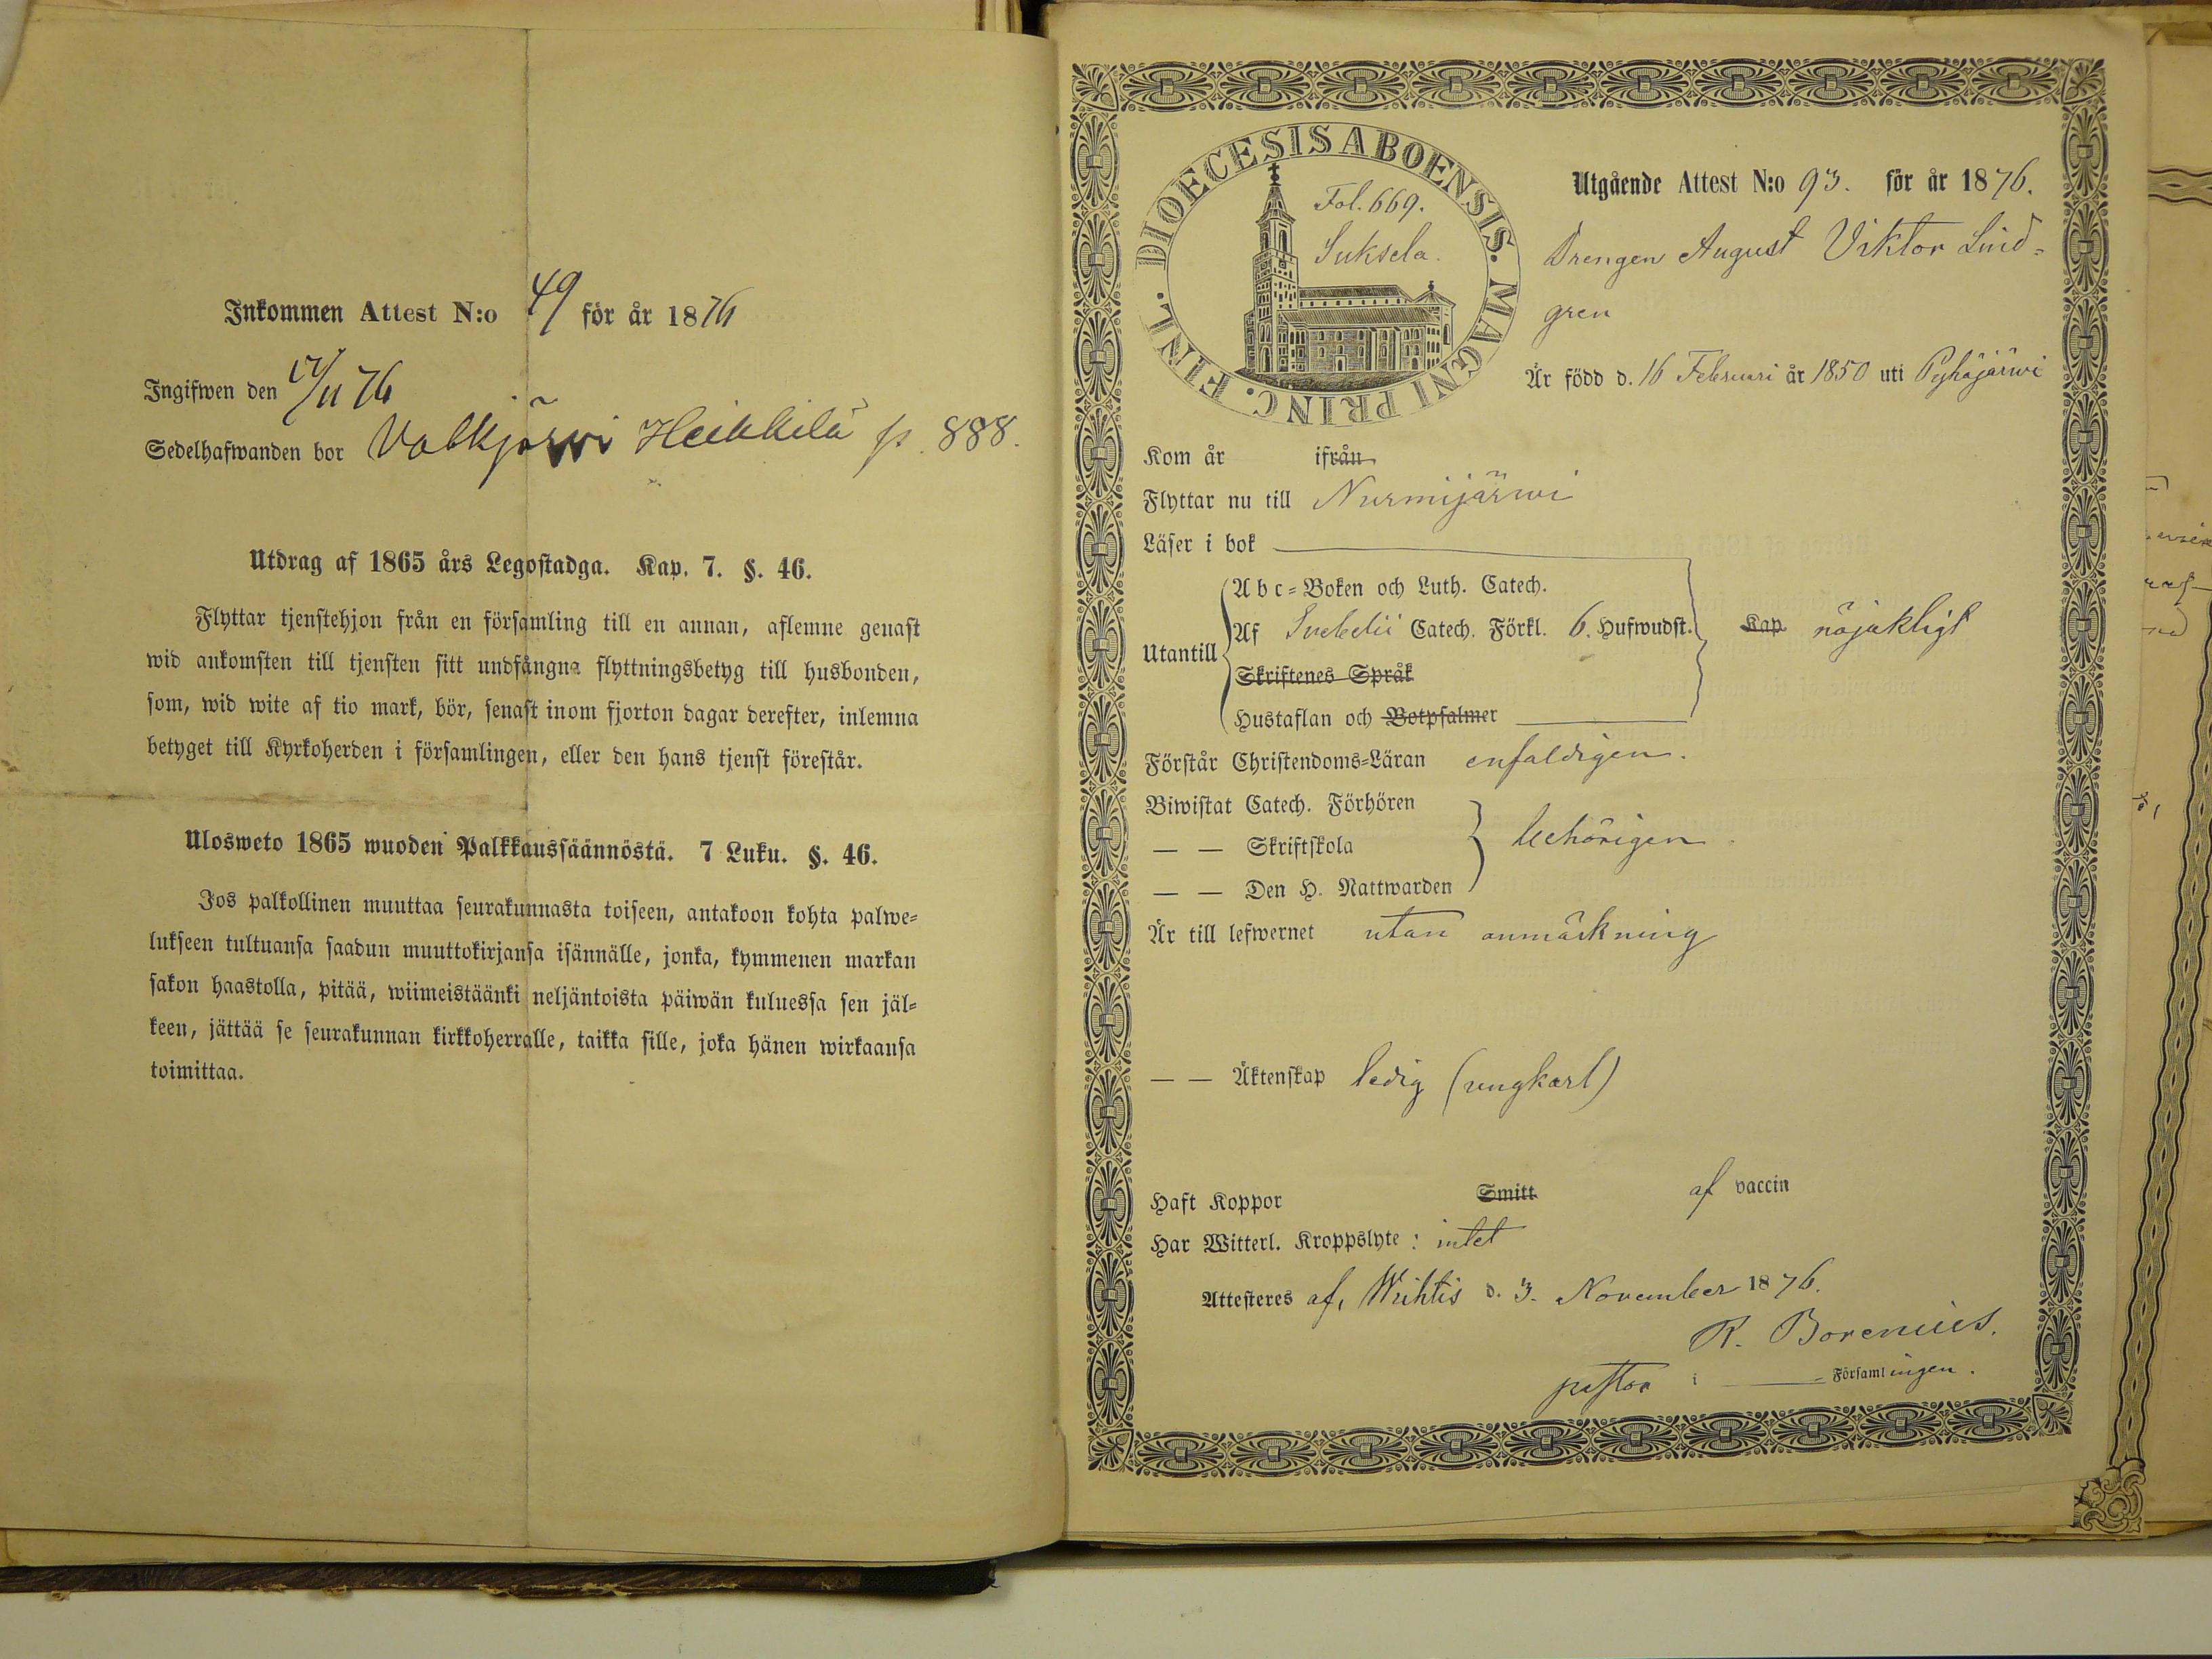 Inkommen Attest N:o 49 för år 1876
Ingifwen den 17/11 76
Sedelhafwanden bor Valkjärwi Heikkilä p. 888.
Utdrag af 1865 års Legostadga. Kap. 7. §. 46.
Flyttar tjenstehjon från en församling till en annan, aflemne genast
wid ankomsten till tjensten sitt undfångna flyttningsbetyg till husbonden,
som, wid wite af tio mark, bör, senast inom fjorton dagar derefter, inlemna
betyget till Kyrkoherden i församlingen, eller den hans tjenst förestår.
Ulosweto 1865 wuoden Palkkaussäännöstä. 7 Luku. §. 46.
Jos palkollinen muuttaa seurakunnasta toiseen, antakoon kohta palwe=
lukseen tultuansa saadun muuttokirjansa isännälle, jonka, kymmenen markan
sakon haastolla, pitää, wiimeistäänki neljäntoista päiwän kuluessa sen jäl=
keen, jättää se seurakunnan kirkkoherralle, taikka sille, joka hänen wirkaansa
toimittaa.
DIOECESIS ABOENSIS. MAGNI PRINC. FINL.
Fol. 669.
Suksela.
Utgående Attest N:o 93. för år 1876.
Drengen August Viktor Lind=
gren
Är född d. 16 Februari år 1850 uti Pyhäjärwi
Kom år ifrån
Flyttar nu till Nurmijärwi
Läser i bok
Utantill
Abc=Boken och Luth. Catech.
Af Svebelii Catech. Förkl. 6. Hufwudst. Kap nöjakligt
Skriftenes Språk
Hustaflan och Botpsalmer
Förstår Christendoms=Läran enfaldigen.
Biwistat Catech. Förhören
— — Skriftskola behörigen
— — Den H. Nattwarden
Är till lefwernet utan anmärkning
— — Äktenskap ledig (ungkarl)
Haft Koppor Smitt af vaccin
Har Witterl. Kroppslyte: intet
Attesteres af, Wichtis d. 3. November 1876.
R. Borenius.
pastor i Församlingen.